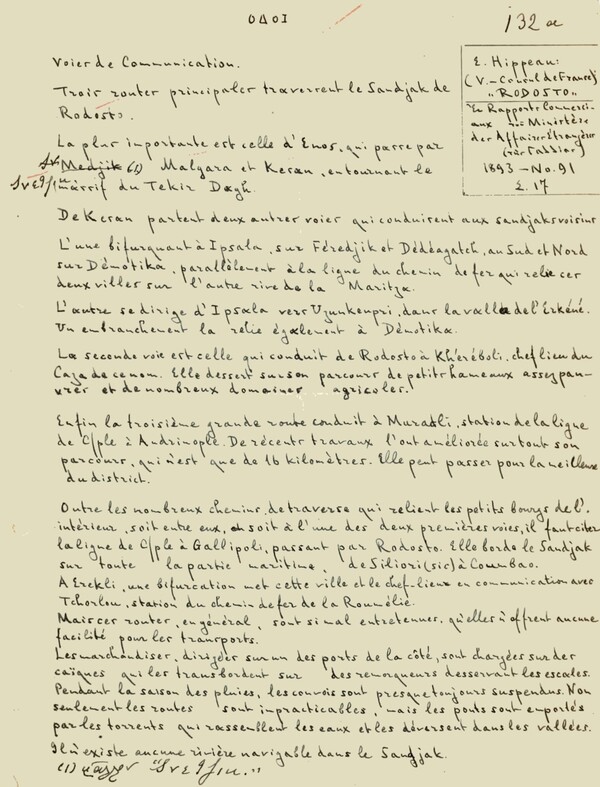 ΟΔΟΙ
132 α
E. Hippeau:
(V.-Consul de France)
"RODOSTO"
En Rapports Commerci-
aux Ministère
des Affaires Étrangères
1893 - No. 91
E. 17
Voies de Communication.
Trois routes principales traversent le Sandjak de
Rodosto.
La plus importante est celle d'Enos, qui passe par
Medjik (1) Malgara et Kesan, entournant le
massif du Tekir Dagh.
De Kesan partent deux autres voies qui conduisent aux sandjaks voisins
L'une bifurquant à Ipsala, sur Féredjik et Dédéagatch, au Sud et Nord
sur Démotika, parallèlement à la ligne du chemin de fer qui relie ces
deux villes sur l'autre rive de la Maritza.
L'autre se dirige d'Ipsala vers Uzunkenpri, dans la vallée de l'Erkéné.
Un embranchement la relie également à Démotika.
La seconde voie est celle qui conduit de Rodosto à Khéréboli, chef lieu du
Caza de ce nom. Elle dessert sur son parcours de petits hameaux assez pau-
vres et de nombreux domaines agricoles.
Enfin la troisième grande route conduit à Muradli, station de la ligne
de C/ple à Andrinople. De récents travaux l'ont améliorée sur tout son
parcours, qui n'est que de 16 kilomètres. Elle peut passer pour la meilleure
du district.
Outre les nombreux chemins de traverse qui relient les petits bourgs de l'
intérieur, soit entre eux, soit à l'une des deux premières voies, il faut citer
la ligne de C/ple à Gallipoli, passant par Rodosto. Elle borde le Sandjak
sur toute la partie maritime, de Siliori (sic) à Coum Bao.
A Erekli, une bifurcation met cette ville et le chef-lieux en communication avec
Tchorlou, station du chemin de fer de la Roumélie.
Mais ces routes, en général, sont si mal entretenues, qu'elles n'offrent aucune
facilité pour les transports.
Les marchandises, dirigées sur un des ports de la côté, sont chargées sur des
caïques qui les transbordent sur des remorqueurs desservant les escales.
Pendant la saison des pluies, les convois sont presque toujours suspendus. Non
seulement les routes sont impracticables, mais les ponts sont emportés
par les torrents qui rassemblent les eaux et les déversent dans les vallées.
Il n'existe aucune rivière navigable dans le Sandjak.
(1)